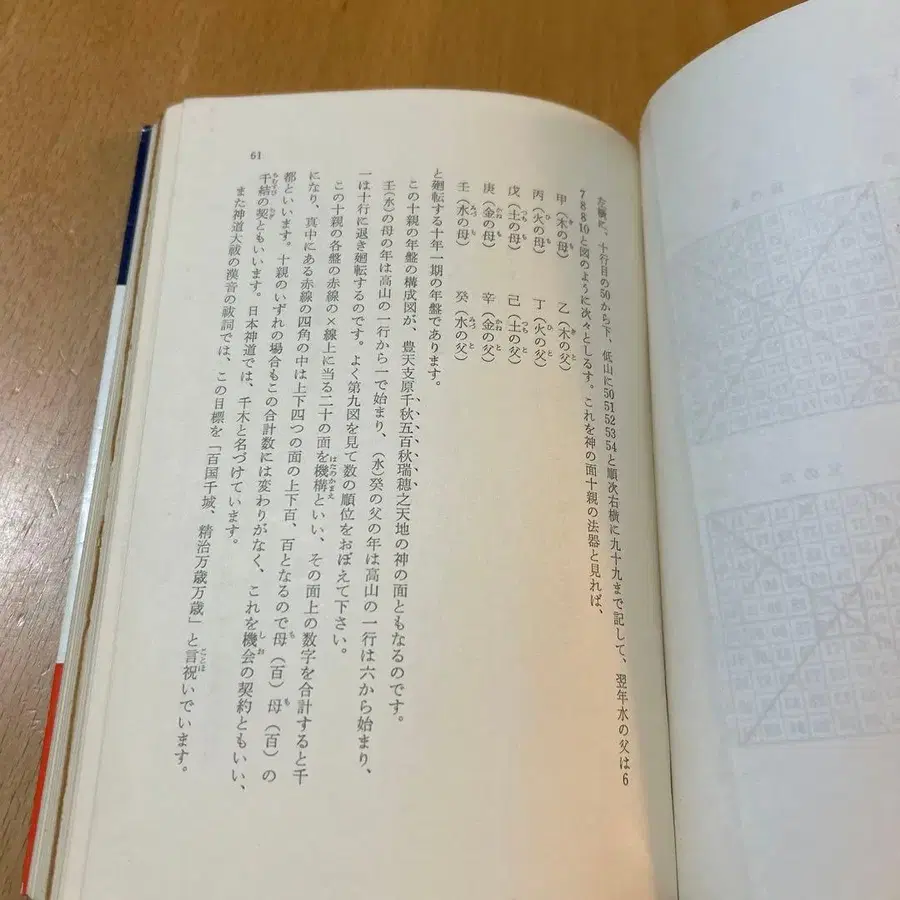 左横に、十行目の50から下、低山に50 51 52 53 54と順次右横に九十九まで記して、翌年水の父は6
7 8 8 10と図のように次々としるす。これを神の面十親の法器と見れば、
甲（木の母） 乙（木の父）
丙（火の母） 丁（火の父）
戊（土の母） 己（土の父）
庚（金の母） 辛（金の父）
壬（水の母） 癸（水の父）
と廻転する十年一期の年盤であります。
この十親の年盤の構成図が、豊天支原千秋五百秋瑞穂之天地の神の面ともなるのです。
壬（水）の母の年は高山の一行から一で始まり、（水）癸の父の年は高山の一行は六から始まり、
一は十行に退き廻転するのです。よく第九図を見て数の順位をおぼえて下さい。
この十親の各盤の赤線の×線上に当る二十の面を機構といい、その面上の数字を合計すると千
になり、真中にある赤線の四角の中は上下四つの面の上下百、百となるので母（百）母（百）の
都といいます。十親のいずれの場合もこの合計数には変わりがなく、これを機会の契約ともいい、
千結の契ともいいます。日本神道では、千木と名づけています。
また神道大祓の漢音の祓詞では、この目標を「百国千城、精治万歳万歳」と言祝いでいます。
61